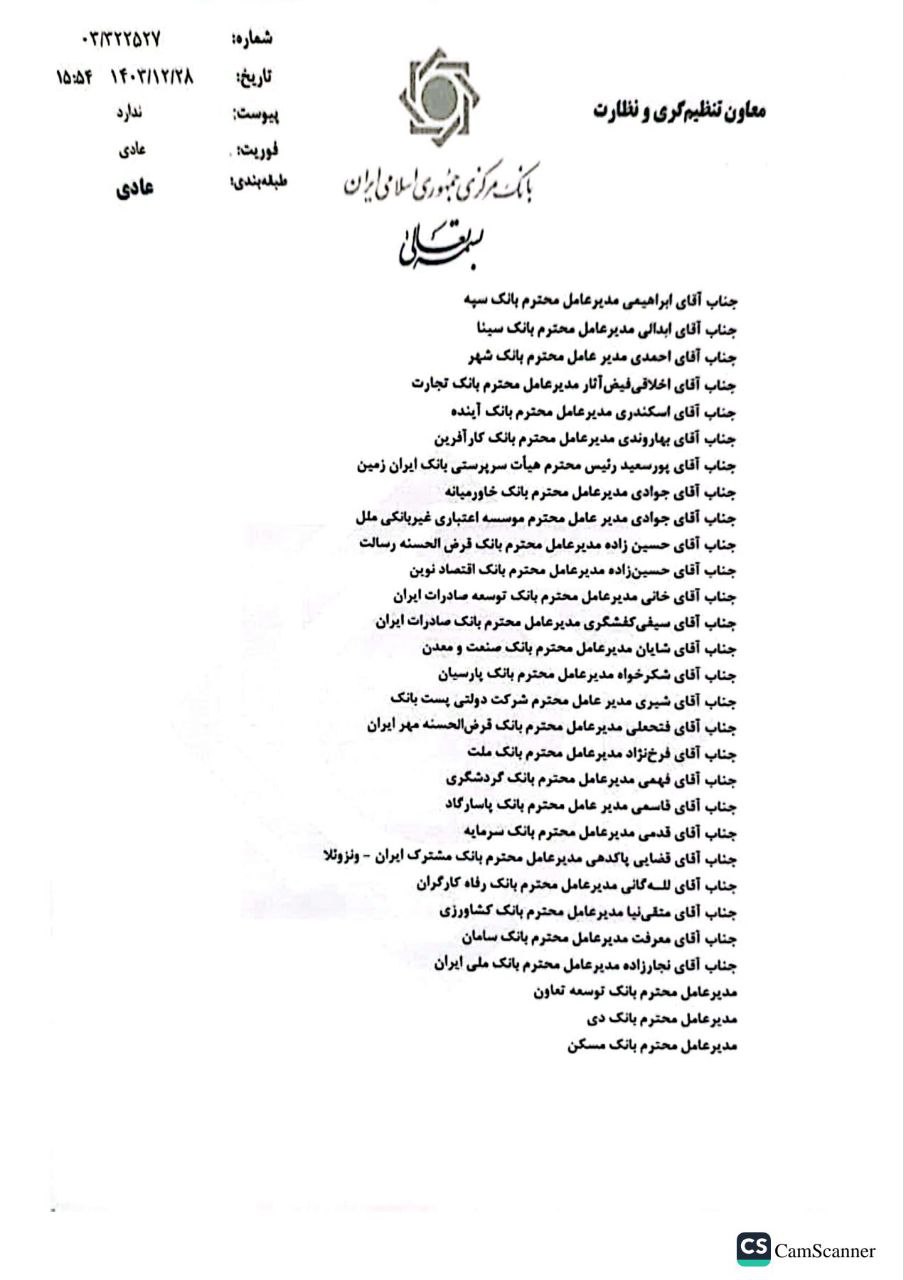 معاون تنظیم‌گری و نظارت
شماره: ۰۳/۳۲۲۵۲۷
تاریخ: ۱۴۰۳/۱۲/۲۸ ۱۵:۵۴
پیوست: ندارد
فوریت: عادی
طبقه‌بندی: عادی
بانک مرکزی جمهوری اسلامی ایران
بسمه تعالی
جناب آقای ابراهیمی مدیرعامل محترم بانک سپه
جناب آقای ابدالی مدیرعامل محترم بانک سینا
جناب آقای احمدی مدیر عامل محترم بانک شهر
جناب آقای اخلاقی‌فیض‌آثار مدیرعامل محترم بانک تجارت
جناب آقای اسکندری مدیرعامل محترم بانک آینده
جناب آقای بهاروندی مدیرعامل محترم بانک کارآفرین
جناب آقای پورسعید رئیس محترم هیأت سرپرستی بانک ایران زمین
جناب آقای جوادی مدیرعامل محترم بانک خاورمیانه
جناب آقای جوادی مدیر عامل محترم موسسه اعتباری غیربانکی ملل
جناب آقای حسین زاده مدیرعامل محترم بانک قرض الحسنه رسالت
جناب آقای حسین‌زاده مدیرعامل محترم بانک اقتصاد نوین
جناب آقای خانی مدیرعامل محترم بانک توسعه صادرات ایران
جناب آقای سیفی‌کفشگری مدیرعامل محترم بانک صادرات ایران
جناب آقای شایان مدیرعامل محترم بانک صنعت و معدن
جناب آقای شکرخواه مدیرعامل محترم بانک پارسیان
جناب آقای شیری مدیر عامل محترم شرکت دولتی پست بانک
جناب آقای فتحعلی مدیرعامل محترم بانک قرض‌الحسنه مهر ایران
جناب آقای فرخ‌نژاد مدیرعامل محترم بانک ملت
جناب آقای فهمی مدیرعامل محترم بانک گردشگری
جناب آقای قاسمی مدیر عامل محترم بانک پاسارگاد
جناب آقای قدمی مدیرعامل محترم بانک سرمایه
جناب آقای قضایی پاکدهی مدیرعامل محترم بانک مشترک ایران - ونزوئلا
جناب آقای لله‌گانی مدیرعامل محترم بانک رفاه کارگران
جناب آقای متقی‌نیا مدیرعامل محترم بانک کشاورزی
جناب آقای معرفت مدیرعامل محترم بانک سامان
جناب آقای نجارزاده مدیرعامل محترم بانک ملی ایران
مدیرعامل محترم بانک توسعه تعاون
مدیرعامل محترم بانک دی
مدیرعامل محترم بانک مسکن
CS CamScanner